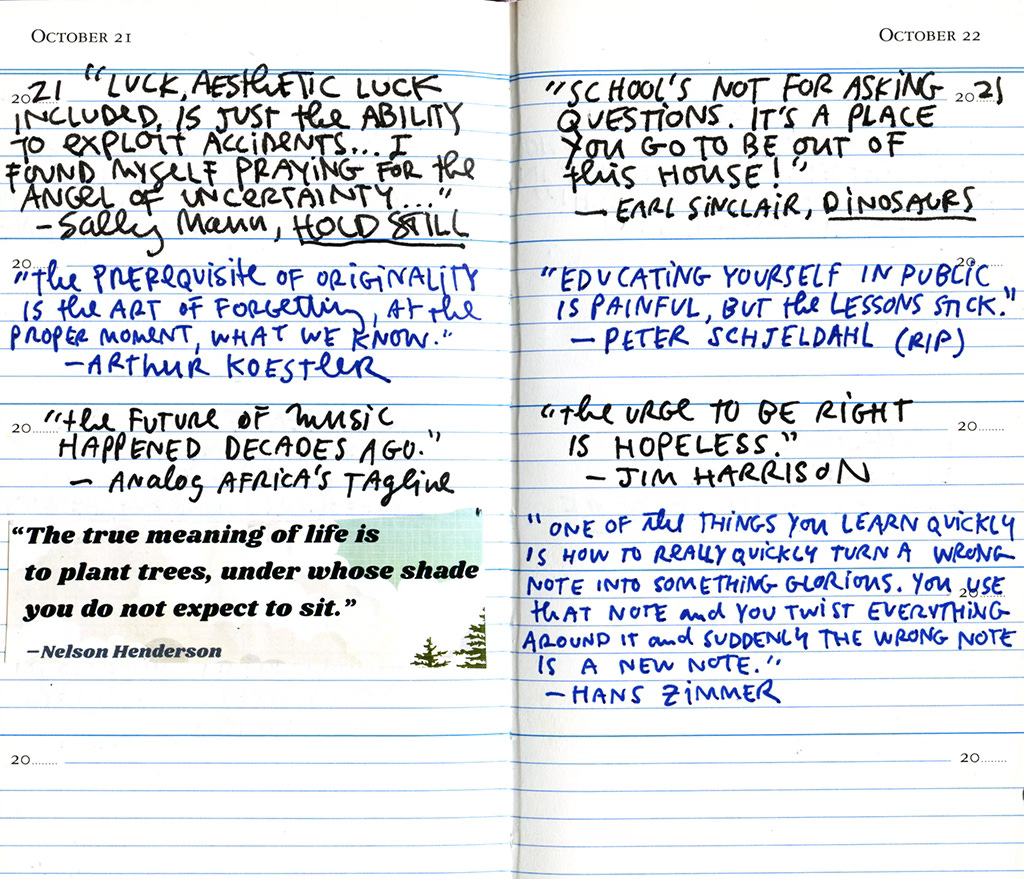 OCTOBER 21
2021 "LUCK, AESTHETIC LUCK
INCLUDED, IS JUST the ABILITY
TO EXPLOIT ACCIDENTS... I
FOUND MYSELF PRAYING FOR the
ANGEL OF UNCERTAINTY..."
—Sally Mann, HOLD STILL
20
"the PREREQUISITE OF ORIGINALITY
IS the ART OF FORGETTING, AT the
PROPER MOMENT, WHAT WE KNOW."
—ARTHUR KOESTLER
"the FUTURE OF MUSIC
20........ HAPPENED DECADES AGO."
— ANALOG AFRICA'S TAGLINE
"The true meaning of life is
to plant trees, under whose shade
you do not expect to sit."
—Nelson Henderson
20........
OCTOBER 22
"SCHOOL'S NOT FOR ASKING 2021
QUESTIONS. IT'S A PLACE
YOU GO TO BE OUT OF
this HOUSE!"
— EARL SINCLAIR, DINOSAURS
20........
"EDUCATING YOURSELF IN PUBLIC
IS PAINFUL, BUT the LESSONS STICK."
— PETER SCHJELDAHL (RIP)
"the URGE TO BE RIGHT
20........
IS HOPELESS."
— JIM HARRISON
"ONE OF the THINGS YOU LEARN QUICKLY
IS HOW TO REALLY QUICKLY TURN A WRONG
NOTE INTO SOMETHING GLORIOUS. YOU USE
20........
tHAT NOTE and YOU TWIST EVERYTHING
AROUND IT and SUDDENLY THE WRONG NOTE
IS A NEW NOTE."
—HANS ZIMMER
20........